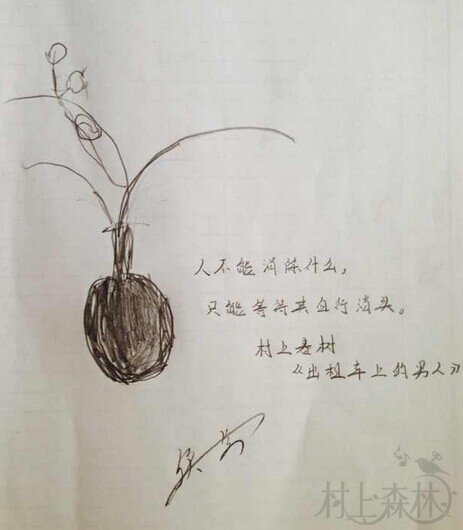 人不能消除什么,
只能等待其自行消失。
村上春树
《出租车上的男人》
村上森林